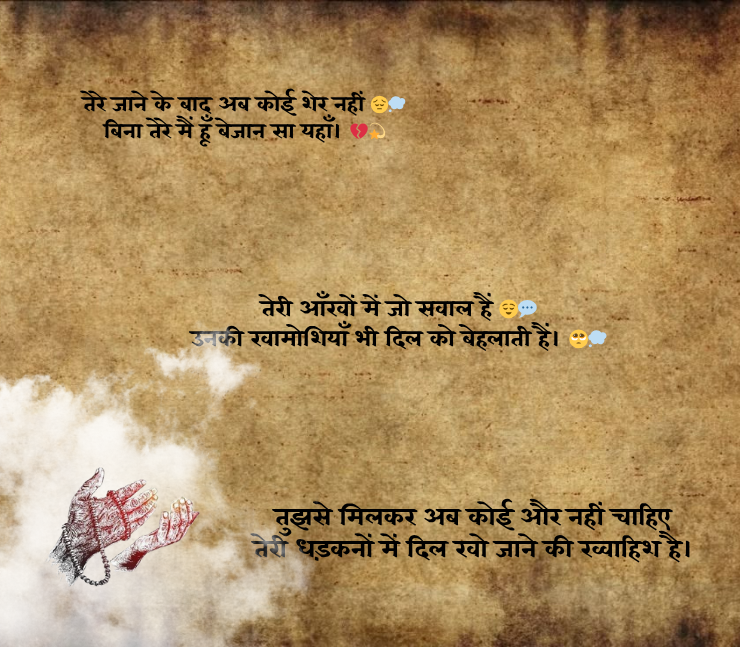 तेरे जाने के बाद अब कोई शेर नहीं 😔💭
बिना तेरे मैं हूँ बेजान सा यहाँ। 💔💫
तेरी आँखों में जो सवाल हैं 😌💬
उनकी खामोशियाँ भी दिल को बेहलाती हैं। 🥺💭
तुझसे मिलकर अब कोई और नहीं चाहिए
तेरी धड़कनों में दिल खो जाने की ख्वाहिश है।